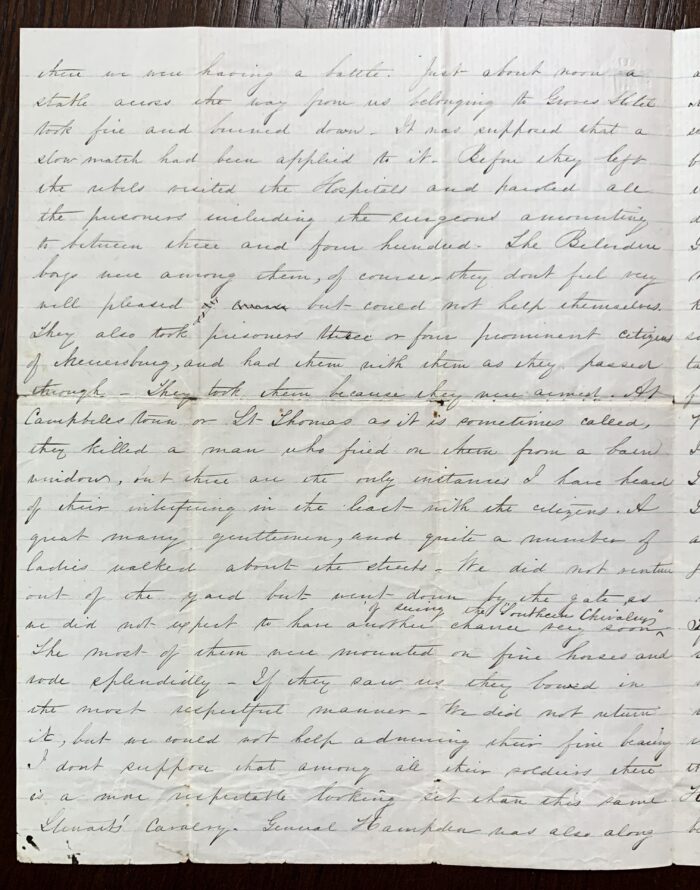 there we were having a battle. Just about noon a
stable across the way from us belonging to Groves Hotel
took fire and burned down - It was supposed that a
slow match had been applied to it - Before they left
the rebels visited the Hospitals and paroled all
the prisoners including the surgeons amounting
to between three and four hundred - The Belvidere
boys were among them, of course, they dont feel very
well pleased but could not help themselves.
They also took prisoners three or four prominent citizens
of Mercersburg, and had them with them as they passed
through - They took them because they were armed. At
Campbles town or St Thomas as it is sometimes called,
they killed a man who fired on them from a barn
window, but these are the only instances I have heard
of their interfering in the least with the citizens. A
great many gentlemen, and quite a number of
ladies walked about the streets - We did not venture
out of the yard but went down by the gate, as
of seeing the "Southern Chivalry"
we did not expect to have another chance very soon
The most of them were mounted on fine horses and
rode splendidly - If they saw us they bowed in
the most respectful manner - We did not return
it, but we could not help admiring their fine bearing
I dont suppose that among all their soldiers there
is a more respectable looking set than this same
Stewart's Cavalry. General Hampden was also along